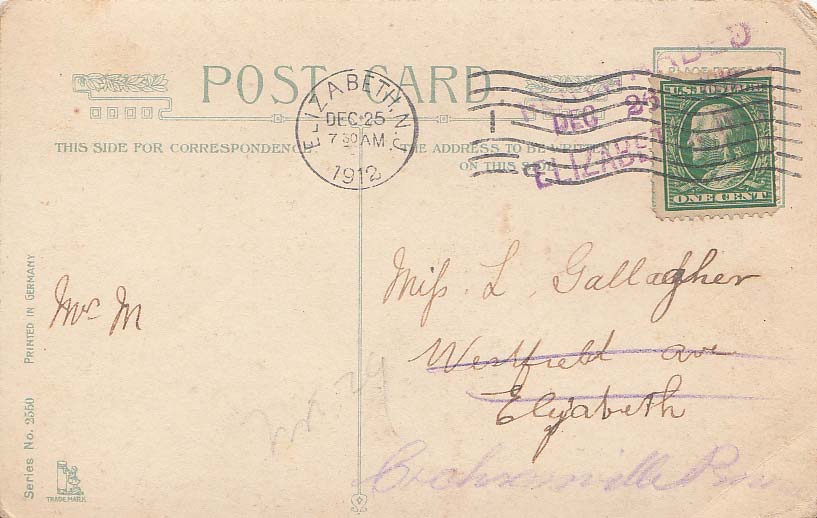 POST CARD
THIS SIDE FOR CORRESPONDENCE.
THE ADDRESS TO BE WRITTEN
ON THIS SIDE
ELIZABETH, N.J.
DEC 25
7 30 AM
1912
DEC 25
ELIZABETH
U.S. POSTAGE
ONE CENT
Mr M
Miss L. Gallagher
Westfield ave
Elizabeth
PRINTED IN GERMANY
Series No. 2550
TRADE MARK